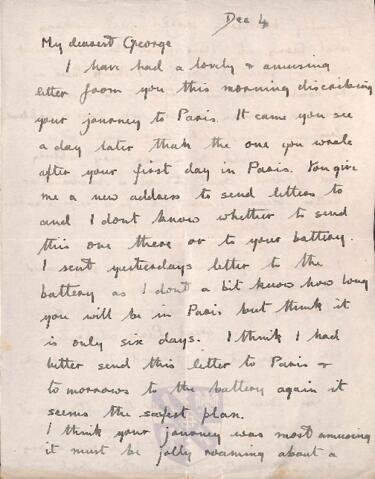 Dec 4
My dearest George
I have had a lovely & amusing
letter from you this morning discribing
your journey to Paris. It came you see
a day later than the one you wrote
after your first day in Paris. You give
me a new address to send letters to
and I dont know whether to send
this one there or to your battery.
I sent yesterdays letter to the
battery as I dont a bit know how long
you will be in Paris but think it
is only six days. I think I had
better send this letter to Paris &
tomorrows to the battery again it
seems the safest plan.
I think your journey was most amusing
it must be jolly roaming about a